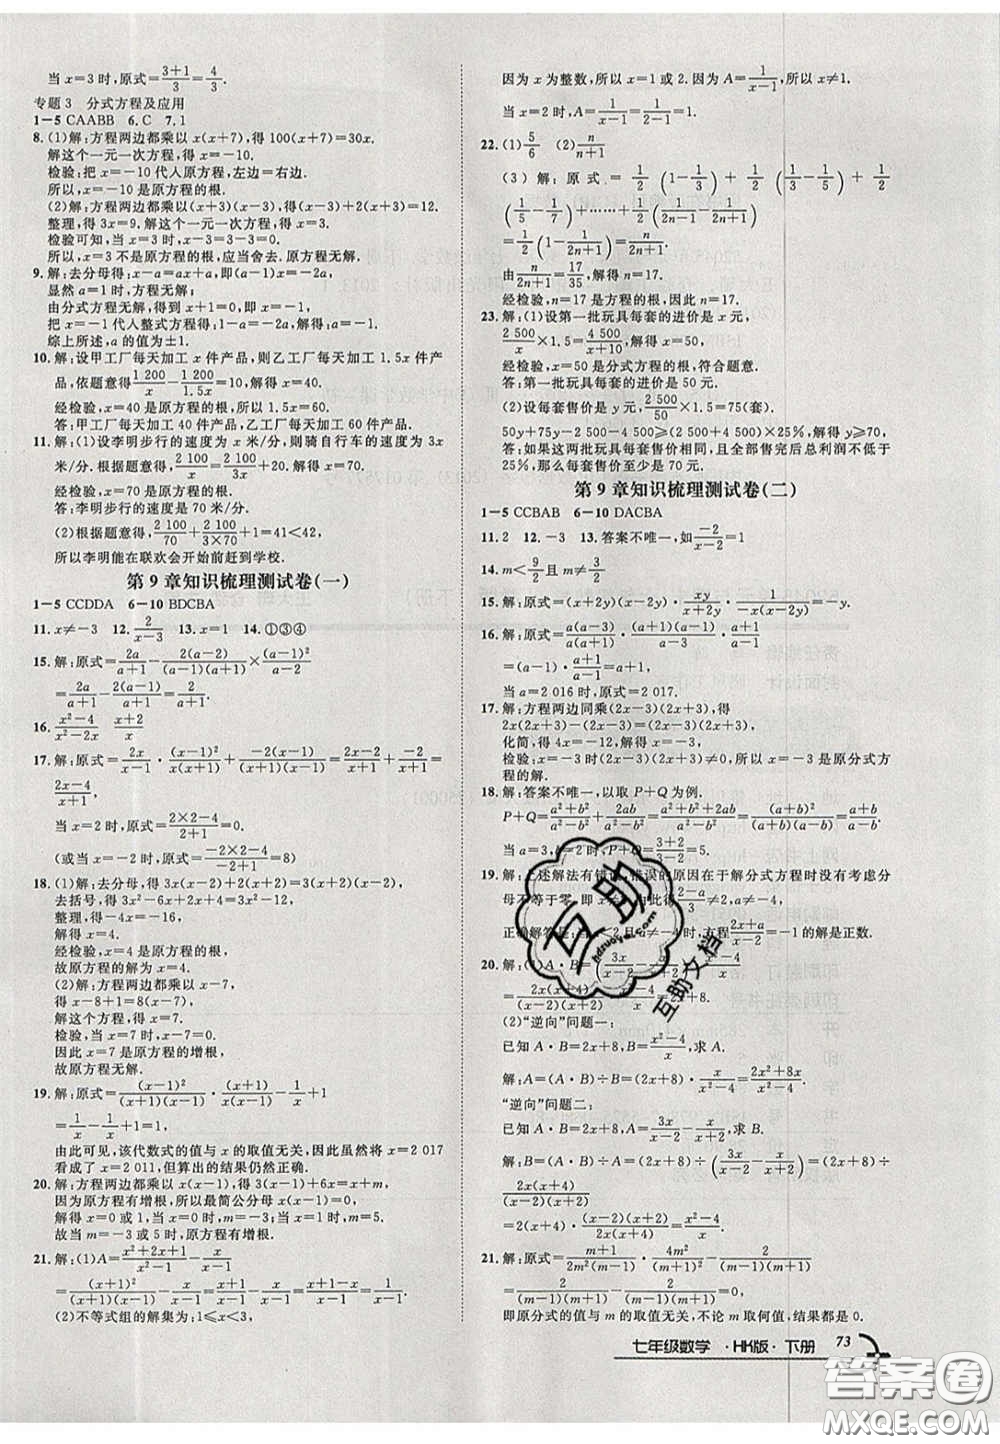 当 x=3 时,原式=(3+1)/3=4/3.
专题 3 分式方程及应用
1－5 CAABB 6.C 7.1
8.(1)解:方程两边都乘以 x(x+7),得 100(x+7)=30x.
解这个一元一次方程,得 x=－10.
检验:把 x=－10 代人原方程,左边=右边.
所以,x=－10 是原方程的根.
(2)解:方程两边都乘以(x+3)(x－3),得(x－3)+2(x+3)=12.
整理,得 3x=9. 解这个一元一次方程,得 x=3.
检验可知,当 x=3 时,x=3 不是原方程的根,应当舍去. 原方程无解.
9.解:去分母得:x－a=ax+a,即(a－1)x=－2a.
显然 a=1 时,方程无解.
由分式方程无解,得到 x+1=0,即 x=－1.
把 x=－1 代人整式方程得:1－a=－2a,解得:a=－1.
综上所述,a 的值为±1.
10.解:设甲工厂每天加工 x 件产品,则乙工厂每天加工 1.5x 件产
品,依题意得 1 200/x－1 200/1.5x=10,解得:x=40.
经检验,x=40 是原方程的根,所以 1.5x=60.
答:甲工厂每天加工 40 件产品,乙工厂每天加工 60 件产品.
11.解:(1)设李明步行的速度为 x 米/分,则骑自行车的速度为 3x
米/分. 根据题意,得 2 100/x－2 100/3x=20. 解得 x=70.
经检验,x=70 是原方程的解.
答:李明步行的速度是 70 米/分.
(2)根据题意,得 2 100/(3×70)+2 100/70+1=41<42.
所以李明能在联欢会开始前赶到学校.
第 9 章知识梳理测试卷(一)
1－5 CCDDA 6－10 BDCBA
11.x≠－3 12.2/(x－3) 13.x=1 14.①③④
15.解:原式=2a/(a+1)－2(a－2)/((a－1)(a+1))×(a－1)²/(a－2)
=2a/(a+1)－2(a－1)/(a+1)=(2a－2a+2)/(a+1)=2/(a+1).
16.(x²－4)/(x²－2x) (x+2)/x
17.解:原式=2x/(x－1)·(x－1)²/(x+1)+－2(x－1)/(x+1)=(2x－2)/(x+1)·
(2x－4)/(x+1),
当 x=2 时,原式=(2×2－4)/(2+1)=0.
(或当 x=－2 时,原式=(－2×2－4)/(－2+1)=8)
18.(1)解:去分母,得 3x(x－2)+2(x+2)=3(x+2)(x－2),
去括号,得 3x²－6x+2x+4=3x²－12,
整理,得－4x=－16.
解得 x=4.
经检验,x=4 是原方程的根,
故原方程的解为 x=4.
(2)解:方程两边都乘以 x－7,
得 x－8+1=8(x－7).
解这个方程,得 x=7.
检验,当 x=7 时,x－7=0,
因此 x=7 是原方程的增根,
故原方程无解.
19.解:原式=(x－1)²/((x+1)(x－1))·x(x+1)/(x－1)·1/x+1
=1－1+1=1.
由此可见,该代数式的值与 x 的取值无关,因此虽然将 x=2 017
看成了 x=2 011,但算出的结果仍然正确.
20.解:方程两边都乘以 x(x－1),得 3(x－1)+6x=x+m,
因为原方程有增根,所以最简公分母 x(x－1)=0,
解得 x=0 或 1,当 x=0 时,m=－3;当 x=1 时,m=5.
故当 m=－3 或 5 时,原方程有增根.
21.解:(1)A=(x²+2x+1)/(x²－1)－x/(x－1)
=(x+1)²/((x+1)(x－1))－x/(x－1)=(x+1)/(x－1)－x/(x－1)=1/(x－1).
(2)不等式组的解集为:1≤x<3,
因为 x 为整数,所以 x=1 或 2. 因为 A=1/(x－1),所以 x≠1.
当 x=2 时,A=1/(x－1)=1/(2－1)=1.
22.(1)5/6 (2)n/(n+1)
(3)解:原式=1/2(1－1/3)+1/2(1/3－1/5)+1/2
(1/5－1/7)+……+1/2(1/(2n－1)－1/(2n+1))
=1/2(1－1/(2n+1))=n/(2n+1).
由 n/(2n+1)=17/35,解得 n=17.
经检验,n=17 是方程的根,因此 n=17.
23.解:(1)设第一批玩具每套的进价是 x 元,
2 500/x×1.5=4 500/(x+10),解得 x=50,
经检验,x=50 是分式方程的解,符合题意.
答:第一批玩具每套的进价是 50 元.
(2)设每套售价是 y 元,2 500/50×1.5=75(套).
50y+75y－2 500－4 500≥(2 500+4 500)×25%,解得 y≥70.
答:如果这两批玩具每套售价相同,且全部售完后总利润不低于
25%,那么每套售价至少是 70 元.
第 9 章知识梳理测试卷(二)
1－5 CCBAB 6－10 DACBA
11.2 12.－3 13.答案不唯一,如－2/(x－2)=1
14.m<9/2且 m≠3/2
15.解:原式=(x+2y)(x－2y)·xy/(x+2y)·1/xy=x－2y.
16.解:原式=a(a－3)/(a－1)·(a+1)(a－1)/(a－3)·(a+1)/a(a+1)
=(a－1)·(a+1)/(a－1)=a+1.
当 a=2 016 时,原式=2 017.
17.解:方程两边同乘(2x－3)(2x+3),得
2x(2x+3)－(2x－3)=(2x－3)(2x+3),
化简,得 4x=－12,解得 x=－3.
检验:x=－3 时,(2x－3)(2x+3)≠0,所以 x=－3 是原分式方
程的解.
18.解:答案不唯一,以取 P+Q 为例.
P+Q=(a²+b²)/(a²－b²)+2ab/(a²－b²)=(a²+b²+2ab)/(a²－b²)=(a+b)²/((a+b)(a－b))=(a+b)/(a－b),
当 a=3,b=2 时,P+Q=(3+2)/(3－2)=5.
19.解:上述解法有错误,错误的原因在于解分式方程时没有考虑分
母不等于零,即 x≠2,所以 a≠－4,
正确解答是:当 a<2,a≠－4 时,方程(2x+a)/(x－2)=－1 的解是正数.
20.解:(1)A·B=(3x/(x－2)－x/(x+2))·(x²－4)/x
=2x(x+4)/((x－2)(x+2))·(x－2)(x+2)/x=2x+8.
(2)“逆向”问题一:
已知 A·B=2x+8,B=(x²－4)/x,求 A.
解:A=(A·B)÷B=(2x+8)·x/(x²－4)=(2x²+8x)/(x²－4).
“逆向”问题二:
已知 A·B=2x+8,A=3x/(x－2)－x/(x+2),求 B.
解:B=(A·B)÷A=(2x+8)÷(3x/(x－2)－x/(x+2))=(2x+8)÷
2x(x+4)/((x－2)(x+2))
=2(x+4)·(x－2)(x+2)/2x(x+4)=(x²－4)/x.
21.解:原式=(m+1)/(2m²(m－1))·4m²/(m+1)－2/((m－1)(m+1))·
(m－1)(m+1)/(m－1)=2/(m－1)－2/(m－1)=0.
即原分式的值与 m 的取值无关,不论 m 取何值,结果都是 0.
七年级数学·HK版·下册 73
互助
hdzuoye.com
互助文档
答案圈
MXQE.COM